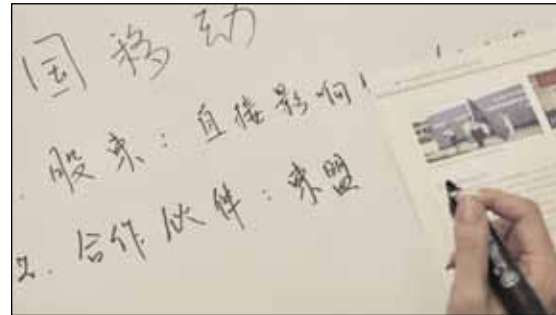 国移动
股东：直接影响
2. 合作伙伴：东盟